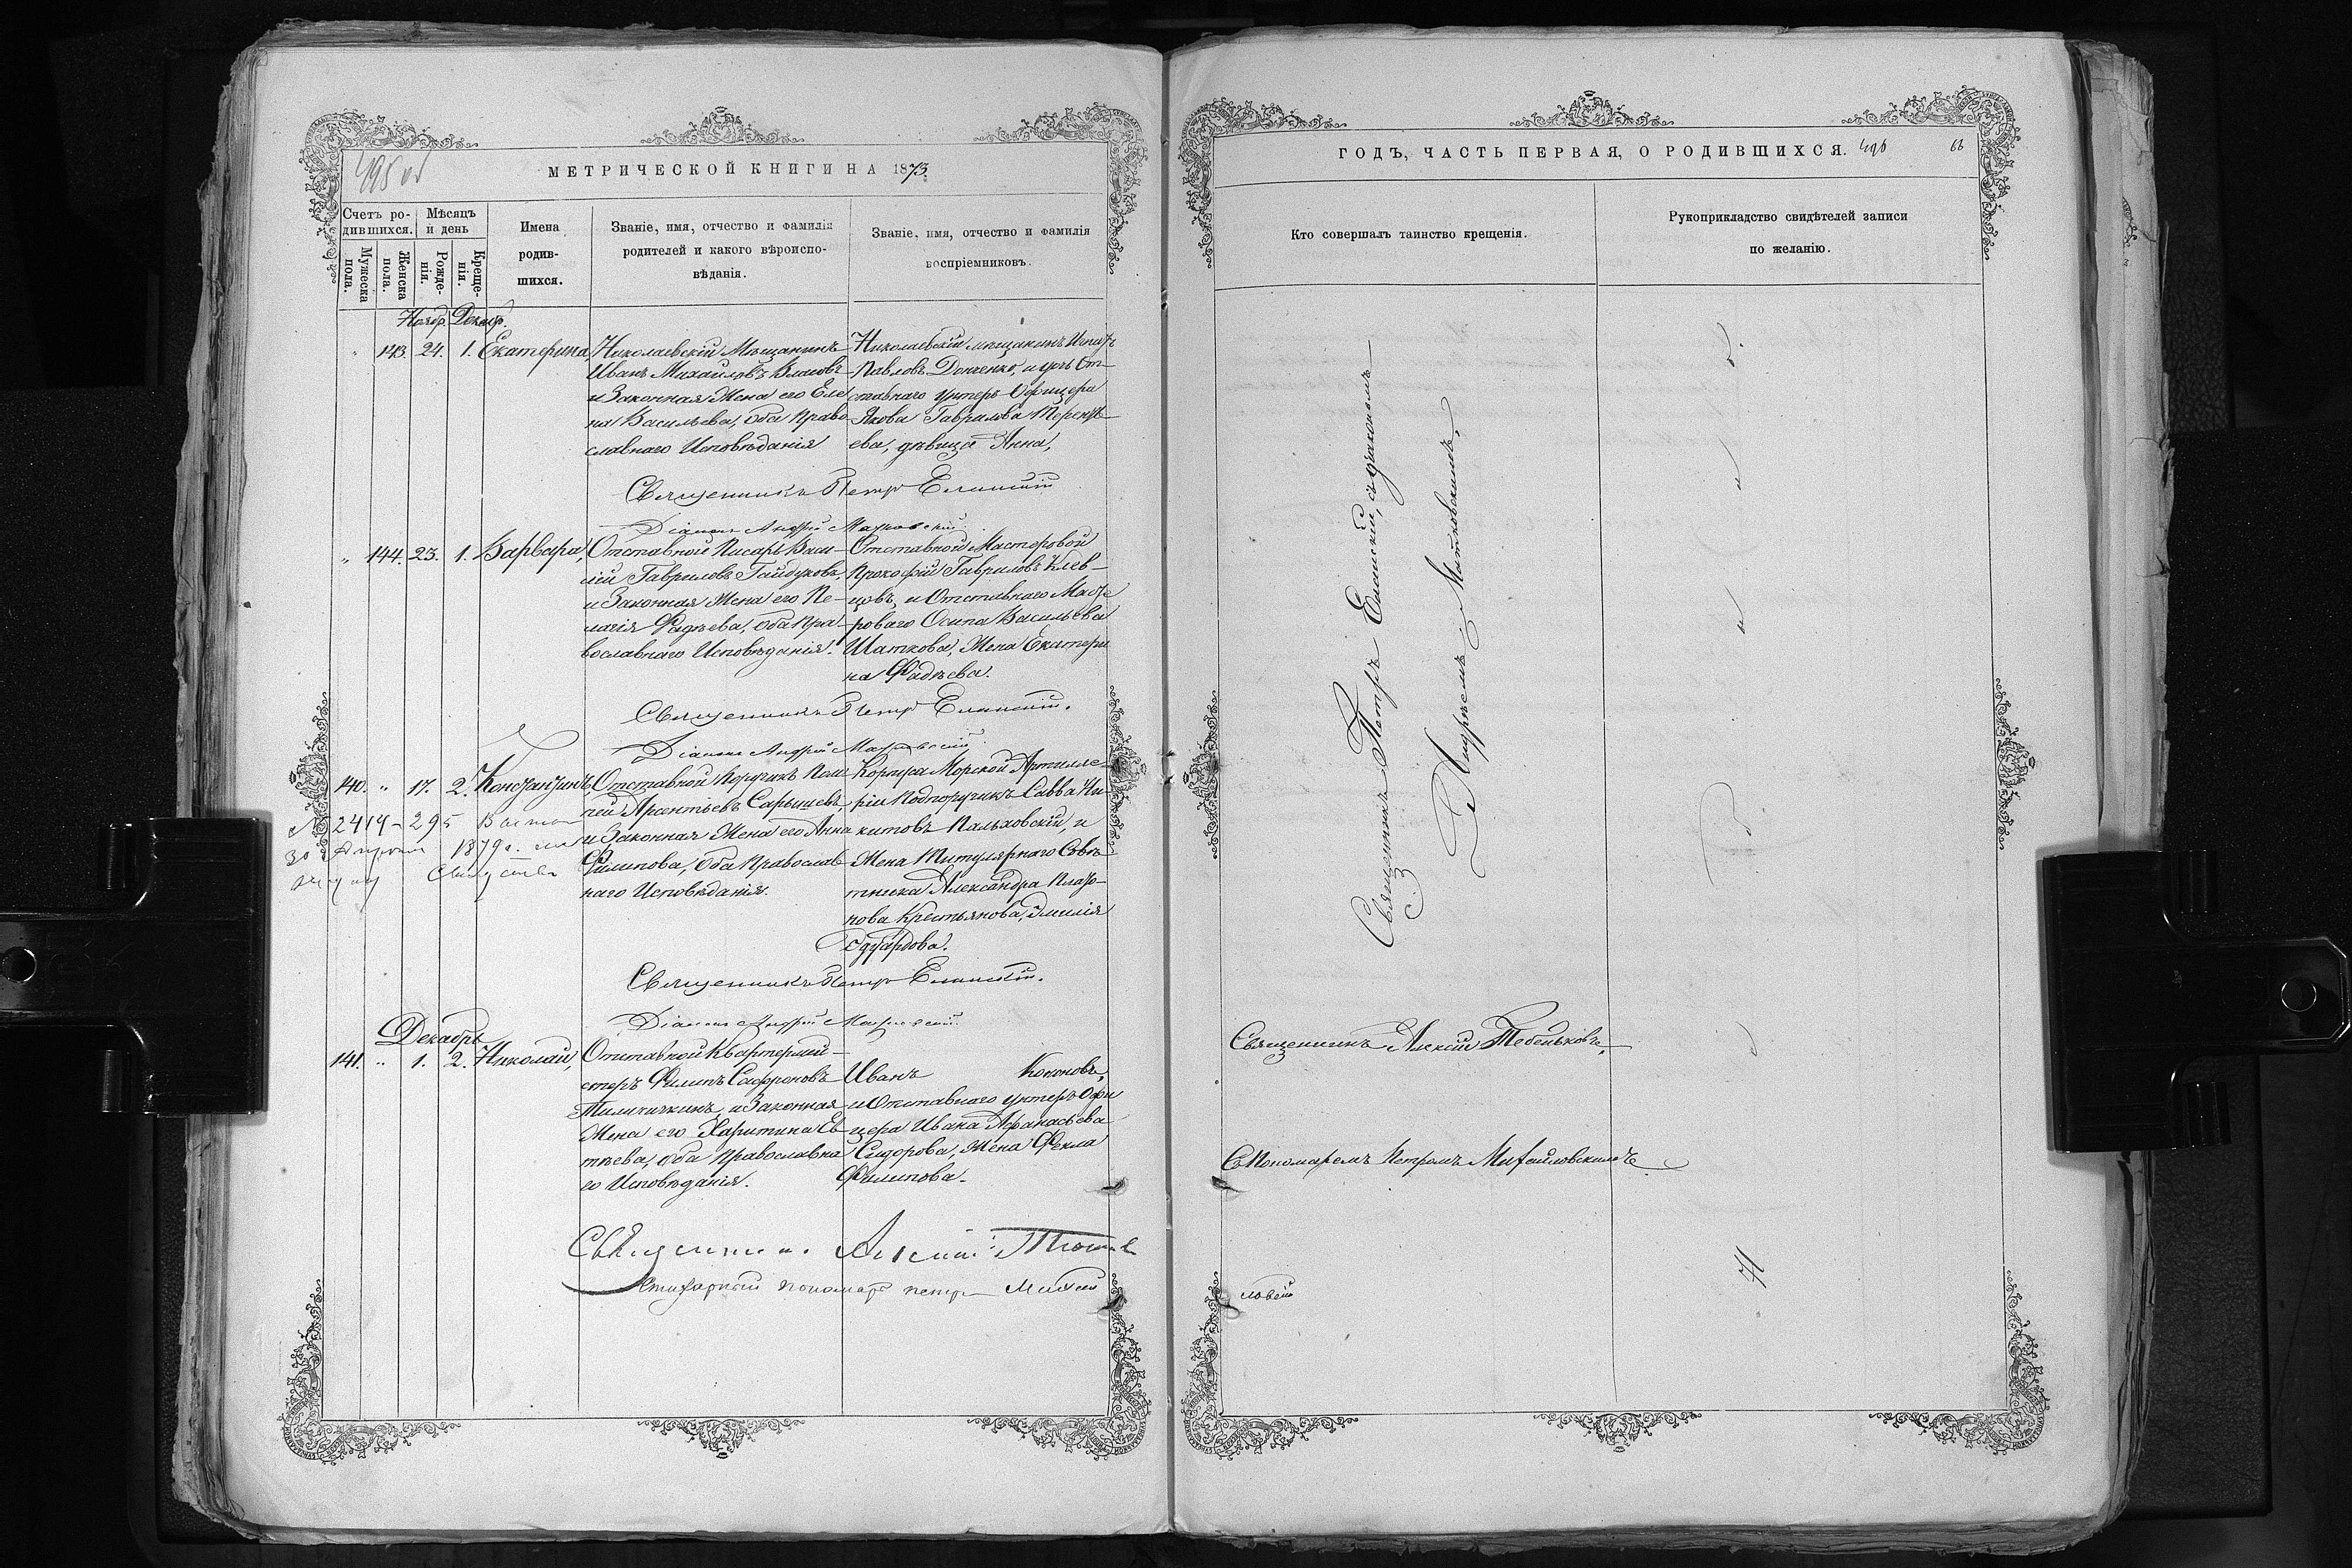 495 об
МЕТРИЧЕСКОЙ КНИГИ НА 1873.
Счетъ ро-
дившихся.
Мѣсяцъ
и день
Мужеска
пола.
Женска
пола.
Рожде-
нія.
Креще-
нія.
Имена
родив-
шихся.
Званіе, имя, отчество и фамилія
родителей и какого вѣроиспо-
вѣданія.
Званіе, имя, отчество и фамилія
воспріемниковъ.
Ноябр. Декабр.
" 143. 24. 1. Екатерина,
Николаевскій Мѣщанинъ
Иванъ Михайловъ
и Законная Жена его Еле
на Васильева, оба Право
славнаго Исповѣданія
Николаевскій мѣщанинъ
Павловъ Донченко, и дочь От-
ставнаго унтеръ Офицера
Якова Гаврилова
ева, дѣвица Анна,
Священникъ Петръ Еланскій
Діаконъ Андрей
" 144. 23. 1. Варвара,
Отставной Писарь Васи-
лій Гавриловъ Гайдуковъ,
и Законная Жена его Пе-
лагія Фадѣева, оба Пра-
вославнаго Исповѣданія.
Отставной Мастеровой
Прокофій Гавриловъ Клев-
цовъ, и Отставнаго Масте
роваго Осипа Васильева
Шаткова, Жена Екатери
на Фадѣева.
Священникъ Петръ Еланскій.
Діаконъ Андрей
140. " 17. 2. Константинъ,
№ 2414 - 295
1879 г.
Отставной Поручикъ Пан
телей Арсентьевъ Сарычевъ,
и Законная Жена его Анна
Филипова, оба Православ
наго Исповѣданія.
Корпуса Морской Артилле-
ріи Подпоручикъ Савва Ни
китовъ Пальховскій, и
Жена Титулярнаго Совѣ
тника Александра Плато-
нова Крестьянова, Эмилія
Эдуардова.
Священникъ Петръ Еланскій.
Діаконъ Андрей
Декабрь
141. " 1. 2. Николай,
Отставной Квартерми-
стръ Филипъ Сафроновъ
и Законная
Жена его Харитина Ев
тѣева, оба Православна
го Исповѣданія.
Иванъ Кононовъ,
и Отставнаго унтеръ Офи
цера Ивана Афанасьева
Сидорова, Жена Фекла
Филипова.
Священникъ Алексій
Стихарный пономарь Петръ Михай
ГОДЪ, ЧАСТЬ ПЕРВАЯ, О РОДИВШИХСЯ. 496
Кто совершалъ таинство крещенія.
Рукоприкладство свидѣтелей записи
по желанію.
Священникъ Петръ Еланскій, съ діакономъ
Андреемъ
Священникъ Алексій Тебеньковъ,
Съ Пономаремъ Петромъ Михайловскимъ.
ловскій